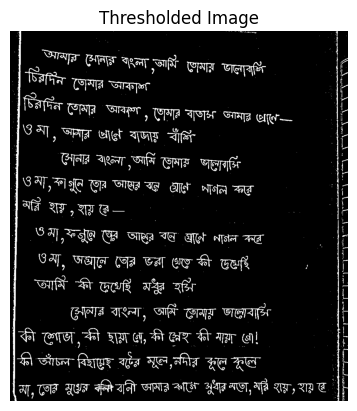 Thresholded Image
আমার সোনার বাংলা, আমি তোমায় ভালোবাসি
চিরদিন তোমার আকাশ
চিরদিন তোমার আকাশ, তোমার বাতাস আমার প্রাণে—
ও মা, আমার প্রাণে বাজায় বাঁশি
সোনার বাংলা, আমি তোমায় ভালোবাসি
ও মা, ফাগুনে তোর আমের বনে ঘ্রাণে পাগল করে
মরি হায়, হায় রে —
ও মা, ফাগুনে তোর আমের বনে ঘ্রাণে পাগল করে
ও মা, অঘ্রানে তোর ভরা খেতে কী দেখেছি
আমি কী দেখেছি মধুর হাসি
সোনার বাংলা, আমি তোমায় ভালোবাসি
কী শোভা, কী ছায়া গো, কী স্নেহ কী মায়া গো!
কী আঁচল বিছায়েছ বটের মূলে, নদীর কূলে কূলে
মা, তোর মুখের বানী আমার কানে সুধার মতো, মরি হায়, হায় রে